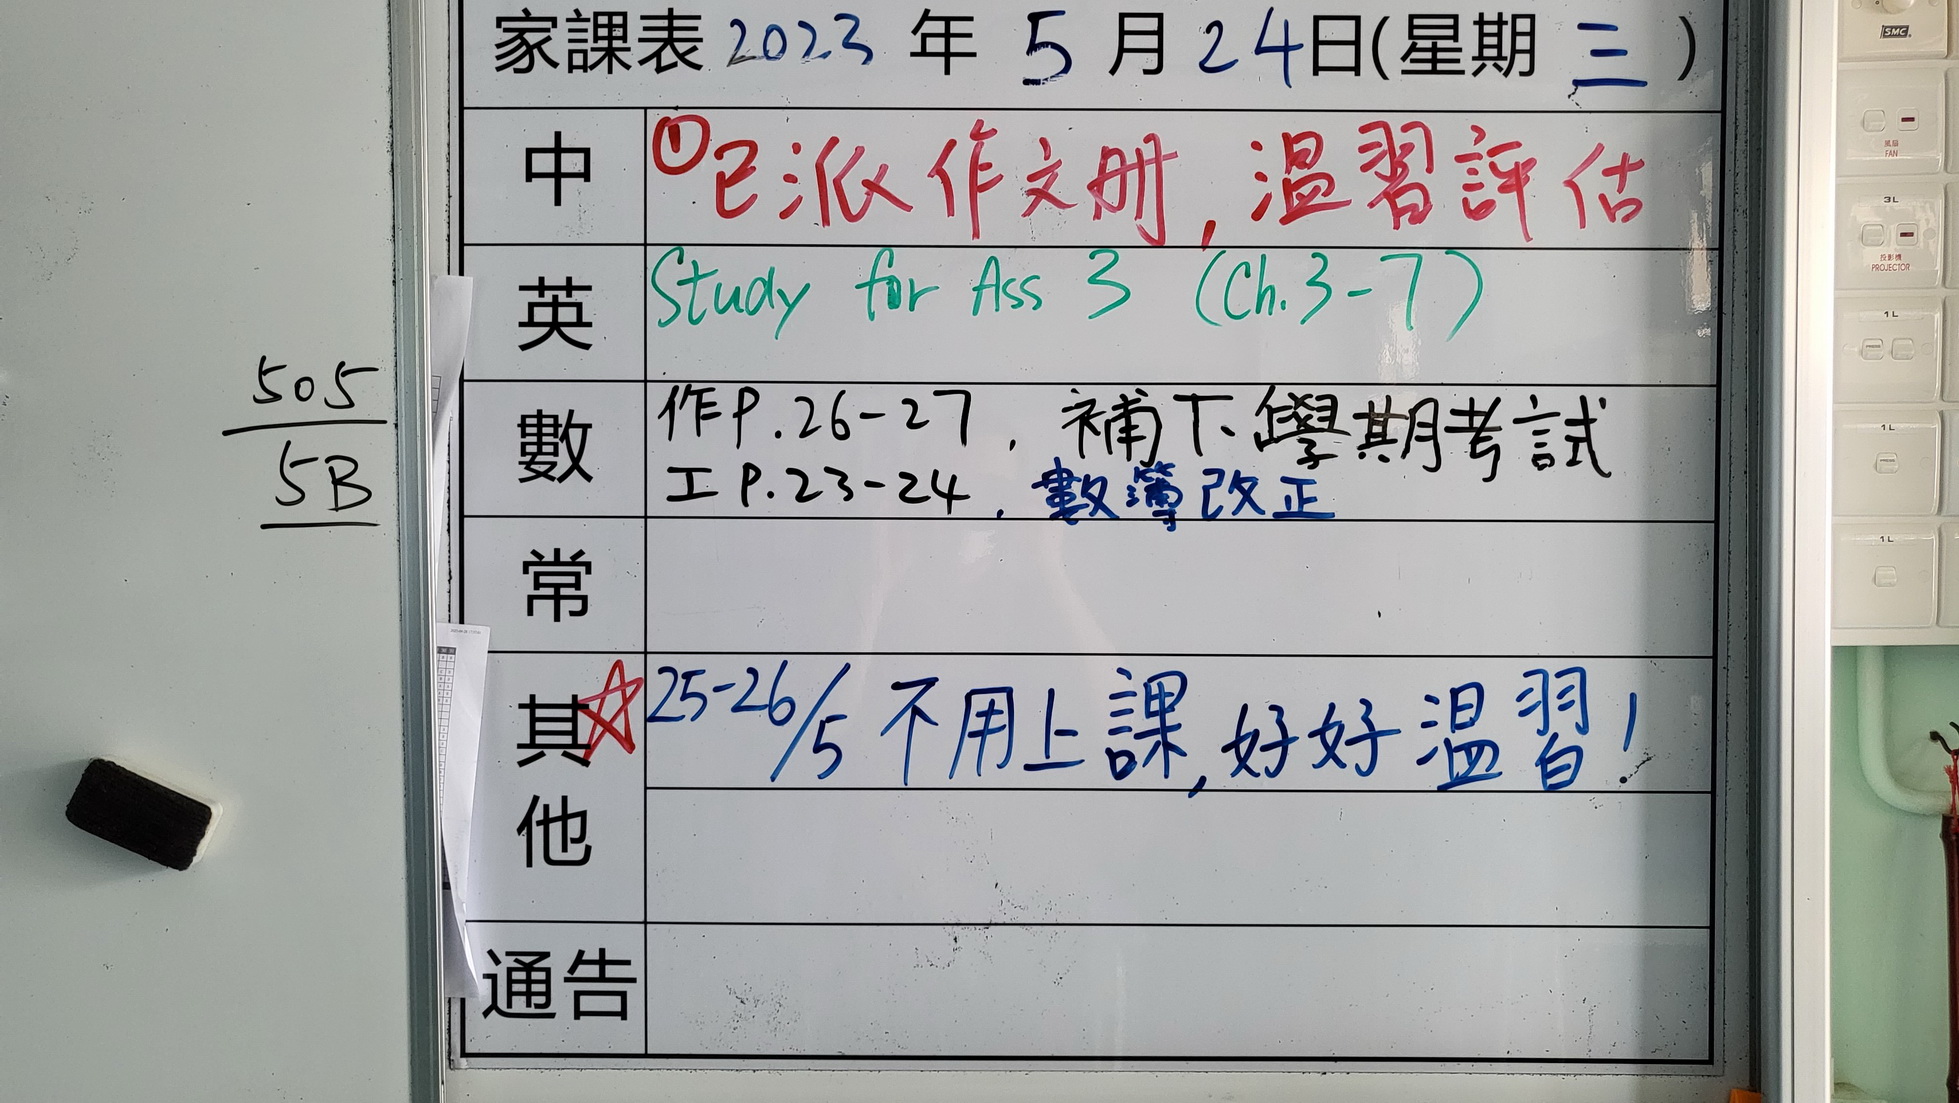 家課表 2023 年 5 月 24 日(星期 三 )
中 ①已派作文册, 溫習評估
英 Study for Ass 3 (Ch.3-7)
數 作P.26-27 , 補下學期考試
工P.23-24 , 數簿改正
常
其他 ☆ 25-26/5 不用上課, 好好溫習!
通告
505
5B
SMC
風扇
FAN
3L
投影機
PROJECTOR
1L
1L
1L